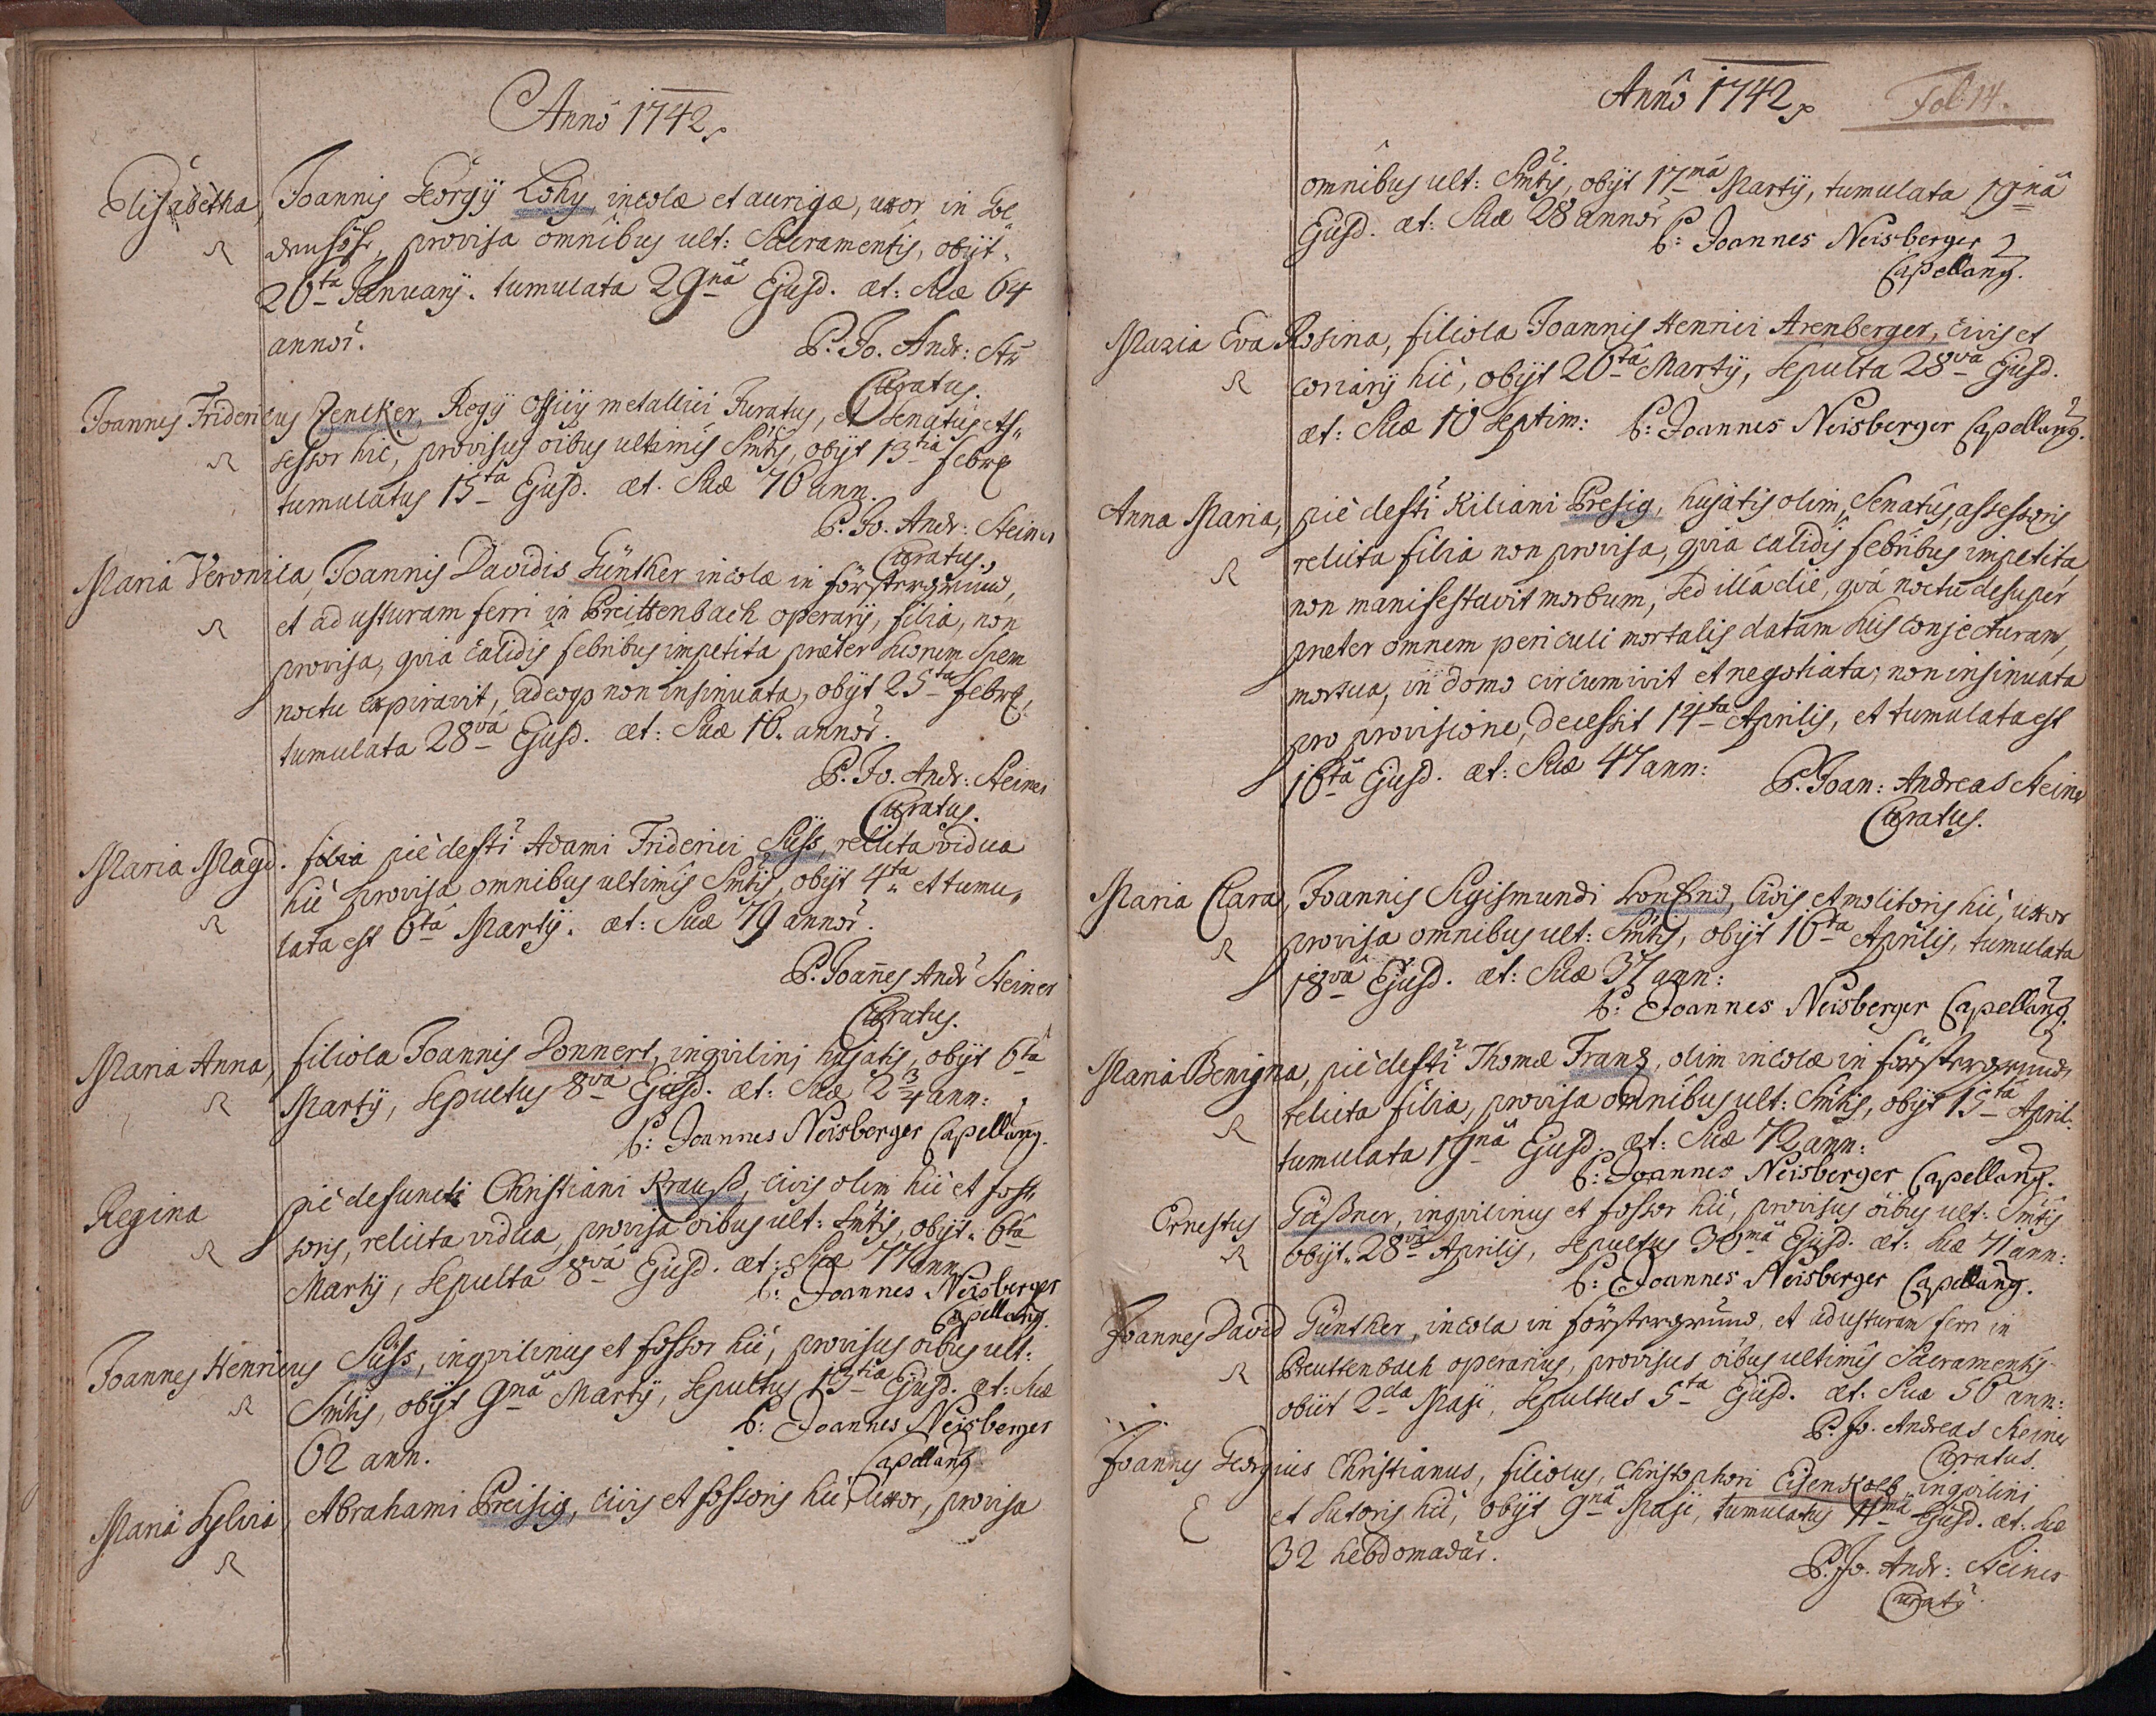 Anno 1742.
Elisabetha, Joannis Georgÿ Lohy, incolæ et aurigæ, uxor in Gol
denhöhe, provisa omnibus ult: Sacramentis, obÿt.
26ta Januarÿ. tumulata 29na Ejusd. æt: Suæ 64
annor.
P. Jo. Andr: Stei
Curatus.
Joannes Fridericus Zencker, Regÿ Officÿ metallici Juratus, et Senatus As,,
sessor hic, provisus oibus ultimis Smtis, obÿt 13tia febr.
tumulatus 15ta Ejusd. æt. Suæ 76 ann.
P. Jo. Andr: Steiner
Curatus.
Maria Veronica, Joannis Davidis Günther incolæ in förstergrund,
et ad usturam ferri in Breittenbach operarÿ, filia, non
provisa, quia calidis febribus impetita præter suorum Spem
noctu expiravit, adeoq non insinuata, obÿt 25ta febr.
tumulata 28va Ejusd. æt: Suæ 16. annor.
P. Jo. Andr: Steiner
Curatus.
Maria Magd. filia piè defti Adami Friderici Süss, relicta vidua
hic provisa omnibus ultimis Smtis, obÿt 4ta et tumu,,
lata est 6ta Martÿ. æt: Suæ 79 annor.
P. Joannes Andr Steiner
Curatus.
Maria Anna, filiola Joannis Donnert, inqvilini hujatis, obÿt 6ta
Martÿ, sepultus 8va Ejusd. æt: Suæ 2 3/4 ann:
P: Joannes Neisberger Capellanus.
Regina piè defuncti Christiani Krauß, civis olim hic et fos,,
soris, relicta vidua, provisa oibus ult: Smtis, obÿt. 6ta
Martÿ, sepulta 8va Ejusd. æt: Suæ 77 ann.
P: Joannes Neisberger
Capellanus.
Joannes Henricus Süss, inqvilinus et fossor hic, provisus oibus ult:
Smtis, obÿt 9na Martÿ, sepultus 13tia Ejusd. æt: Suæ
62 ann.
P: Joannes Neisberger
Capellanus
Maria Sylvia, Abrahami Preisig, civis et fossoris hic, uxor, provisa
Anno 1742. Fol: 14.
omnibus ult: Smtis, obÿt 17ma Martÿ, tumulata 19na
Ejusd. æt: Suæ 28 annor
P: Joannes Neisberger
Capellanus.
Maria Eva Rosina, filiola Joannis Henrici Arenberger, civis et
coriarÿ hic, obÿt 26ta Martÿ, sepulta 28va Ejusd.
æt: Suæ 10 septim: P: Joannes Neisberger Capellanus.
Anna Maria, piè defti Kiliani Presig, hujatis olim Senatus assessoris
relicta filia non provisa, qvia calidis febribus impetita
non manifestavit morbum, sed illa die, qva noctu desuper
præter omnem periculi mortalis datam suis conjecturam,
mortua, in domo circumivit et negotiata, non insinuata
pro provisione, decessit 14ta Aprilis, et tumulata est
16ta Ejusd. æt: Suæ 47 ann:
P. Joan: Andreas Steiner
Curatus.
Maria Clara, Joannis Sigismundi, civis et molitoris hic, uxor
provisa omnibus ult: Smtis, obÿt 16ta Aprilis, tumulata
18va Ejusd. æt: Suæ 37 ann:
P: Joannes Neisberger Capellanus.
Maria Benigna, piè defti Thomæ Franz, olim incolæ in förstergrund,
relicta filia, provisa omnibus ult: Smtis, obÿt 15ta April:
tumulata 19na Ejusd. æt: Suæ 72 ann:
P: Joannes Neisberger Capellanus.
Ernestus Gäßner, inqvilinus et fossor hic, provisus oibus ult: Smtis
obÿt. 28va Aprilis, sepultus 30ma Ejusd. æt: suæ 71 ann:
P: Joannes Neisberger Capellanus.
Joannes David Günther, incola in förstergrund, et ad usturam ferri in
Breuttenbach operarius, provisus oibus ultimis Sacramentis
obiit 2da Maji, sepultus 5ta Ejusd. æt: Suæ 56 ann:
P. Jo. Andreas Steiner
Curatus.
Joannes Georgius Christianus, filiolus, Christophori Eisenkolb, inqvilini
et sutoris hic, obÿt 9na Maji, tumulatus 11ma Ejusd. æt: suæ
32 hebdomadar.
P. Jo. Andr: Steiner
Curatus